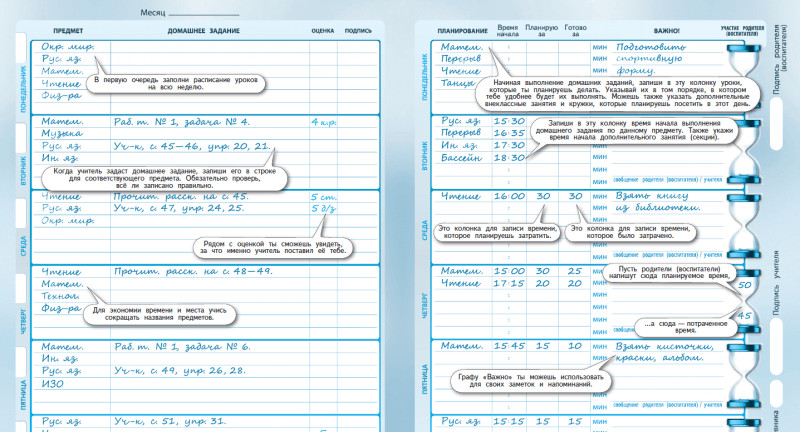 Месяц
ПРЕДМЕТ ДОМАШНЕЕ ЗАДАНИЕ ОЦЕНКА ПОДПИСЬ
ПОНЕДЕЛЬНИК
Окр. мир.
Рус. яз.
Матем.
Чтение
Физ-ра
В первую очередь заполни расписание уроков
на всю неделю.
ВТОРНИК
Матем. Раб. т. № 1, задача № 4. 4 к.р.
Музыка
Рус. яз. Уч-к, с. 45—46, упр. 20, 21.
Ин. яз.
Когда учитель задаст домашнее задание, запиши его в строке
для соответствующего предмета. Обязательно проверь,
всё ли записано правильно.
СРЕДА
Чтение Прочит. расск. на с. 45. 5 ст.
Рус. яз. Уч-к, с. 47, упр. 24, 25. 5 д/з
Окр. мир.
Рядом с оценкой ты сможешь увидеть,
за что именно учитель поставил её тебе.
ЧЕТВЕРГ
Чтение Прочит. расск. на с. 48—49.
Матем.
Технол.
Физ-ра
Для экономии времени и места учись
сокращать названия предметов.
ПЯТНИЦА
Матем. Раб. т. № 1, задача № 6.
Ин. яз.
Рус. яз. Уч-к, с. 49, упр. 26, 28.
ИЗО
Рус. яз. Уч-к, с. 51, упр. 31.
ПЛАНИРОВАНИЕ Время начала Планирую за Готово за ВАЖНО! УЧАСТИЕ РОДИТЕЛЯ (ВОСПИТАТЕЛЯ)
ПОНЕДЕЛЬНИК
Матем. : мин Подготовить
Перерыв : мин спортивную
Чтение : мин форму.
Танцы
Начиная выполнение домашних заданий, запиши в эту колонку уроки,
которые ты планируешь делать. Указывай их в том порядке, в котором
тебе удобнее будет их выполнять. Можешь также указать дополнительные
внеклассные занятия и кружки, которые планируешь посетить в этот день.
ВТОРНИК
Рус. яз. 15:30
Перерыв 16:35
Ин. яз. 17:30
Бассейн 18:30
Запиши в эту колонку время начала выполнения
домашнего задания по данному предмету. Также укажи
время начала дополнительного занятия (секции).
: мин
: мин сообщение родителя (воспитателя) / учителя
СРЕДА
Чтение 16:00 30 30 мин Взять книгу
: мин из библиотеки.
Это колонка для записи времени,
которое планируешь затратить.
Это колонка для записи времени,
которое было затрачено.
: мин
: мин сообщение родителя (воспитателя) / учителя
ЧЕТВЕРГ
Матем. 15:00 30 25 мин
Чтение 17:15 20 20 мин
: мин
: мин
: мин
Пусть родители (воспитатели)
напишут сюда планируемое время,
50
...а сюда — потраченное
время.
45
ПЯТНИЦА
Матем. 15:45 15 10 мин Взять кисточки,
: мин краски, альбом.
Графу «Важно» ты можешь использовать
для своих заметок и напоминаний.
: мин
: мин сообщение родителя (воспитателя) / учителя
Рус. яз. 15:15 15 15 мин
Подпись родителя
(воспитателя)
Подпись учителя